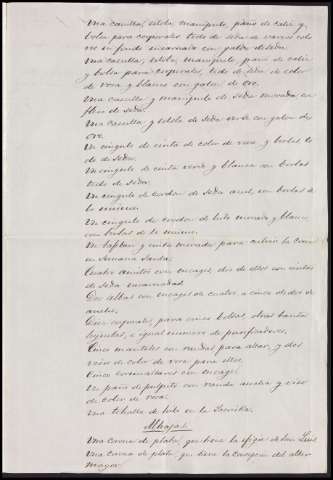 Una casulla, estola, manipulo, paño de caliz y
bolsa para corporales todo de seda de varios colo
res en fondo encarnado con galon de seda.
Una casulla, estola, manipulo, paño de caliz
y bolsa para corporales, todo de seda de color
de rosa y blanco con galon de oro.
Una casulla y manipulo de seda morada, con
fleco de seda.
Una casulla y estola de seda verde con galon de
oro.
Un cíngulo de cinta de color de rosa y borlas to
do de seda.
Un cíngulo de cinta verde y blanca con borlas
todo de seda.
Un cíngulo de cordon de seda azul, con borlas de
lo mismo.
Un cíngulo de cordon de hilo morado y blanco
con borlas de lo mismo.
Un tafetan y cinta morada para cubrir la Cruz
en Semana Santa.
Cuatro amitos con encages, dos de ellos con cintas
de seda encarnadas.
Dos albas con encages de cuatro a cinco dedos de
ancho.
Doce corporales, para cinco bolsas, otras tantas
hijuelas, e igual numero de purificadores.
Cinco manteles con randas para altar, y dos
de color de rosa para ellos.
Cinco cornialtares con encages.
Un paño de pulpito con randa ancha y viso
de color de rosa.
Una tohalla de hilo en la Sacristia.
Alhajas.
Una corona de plata, que tiene la efigie de San Luis
Una corona de plata que tiene la del altar
mayor.